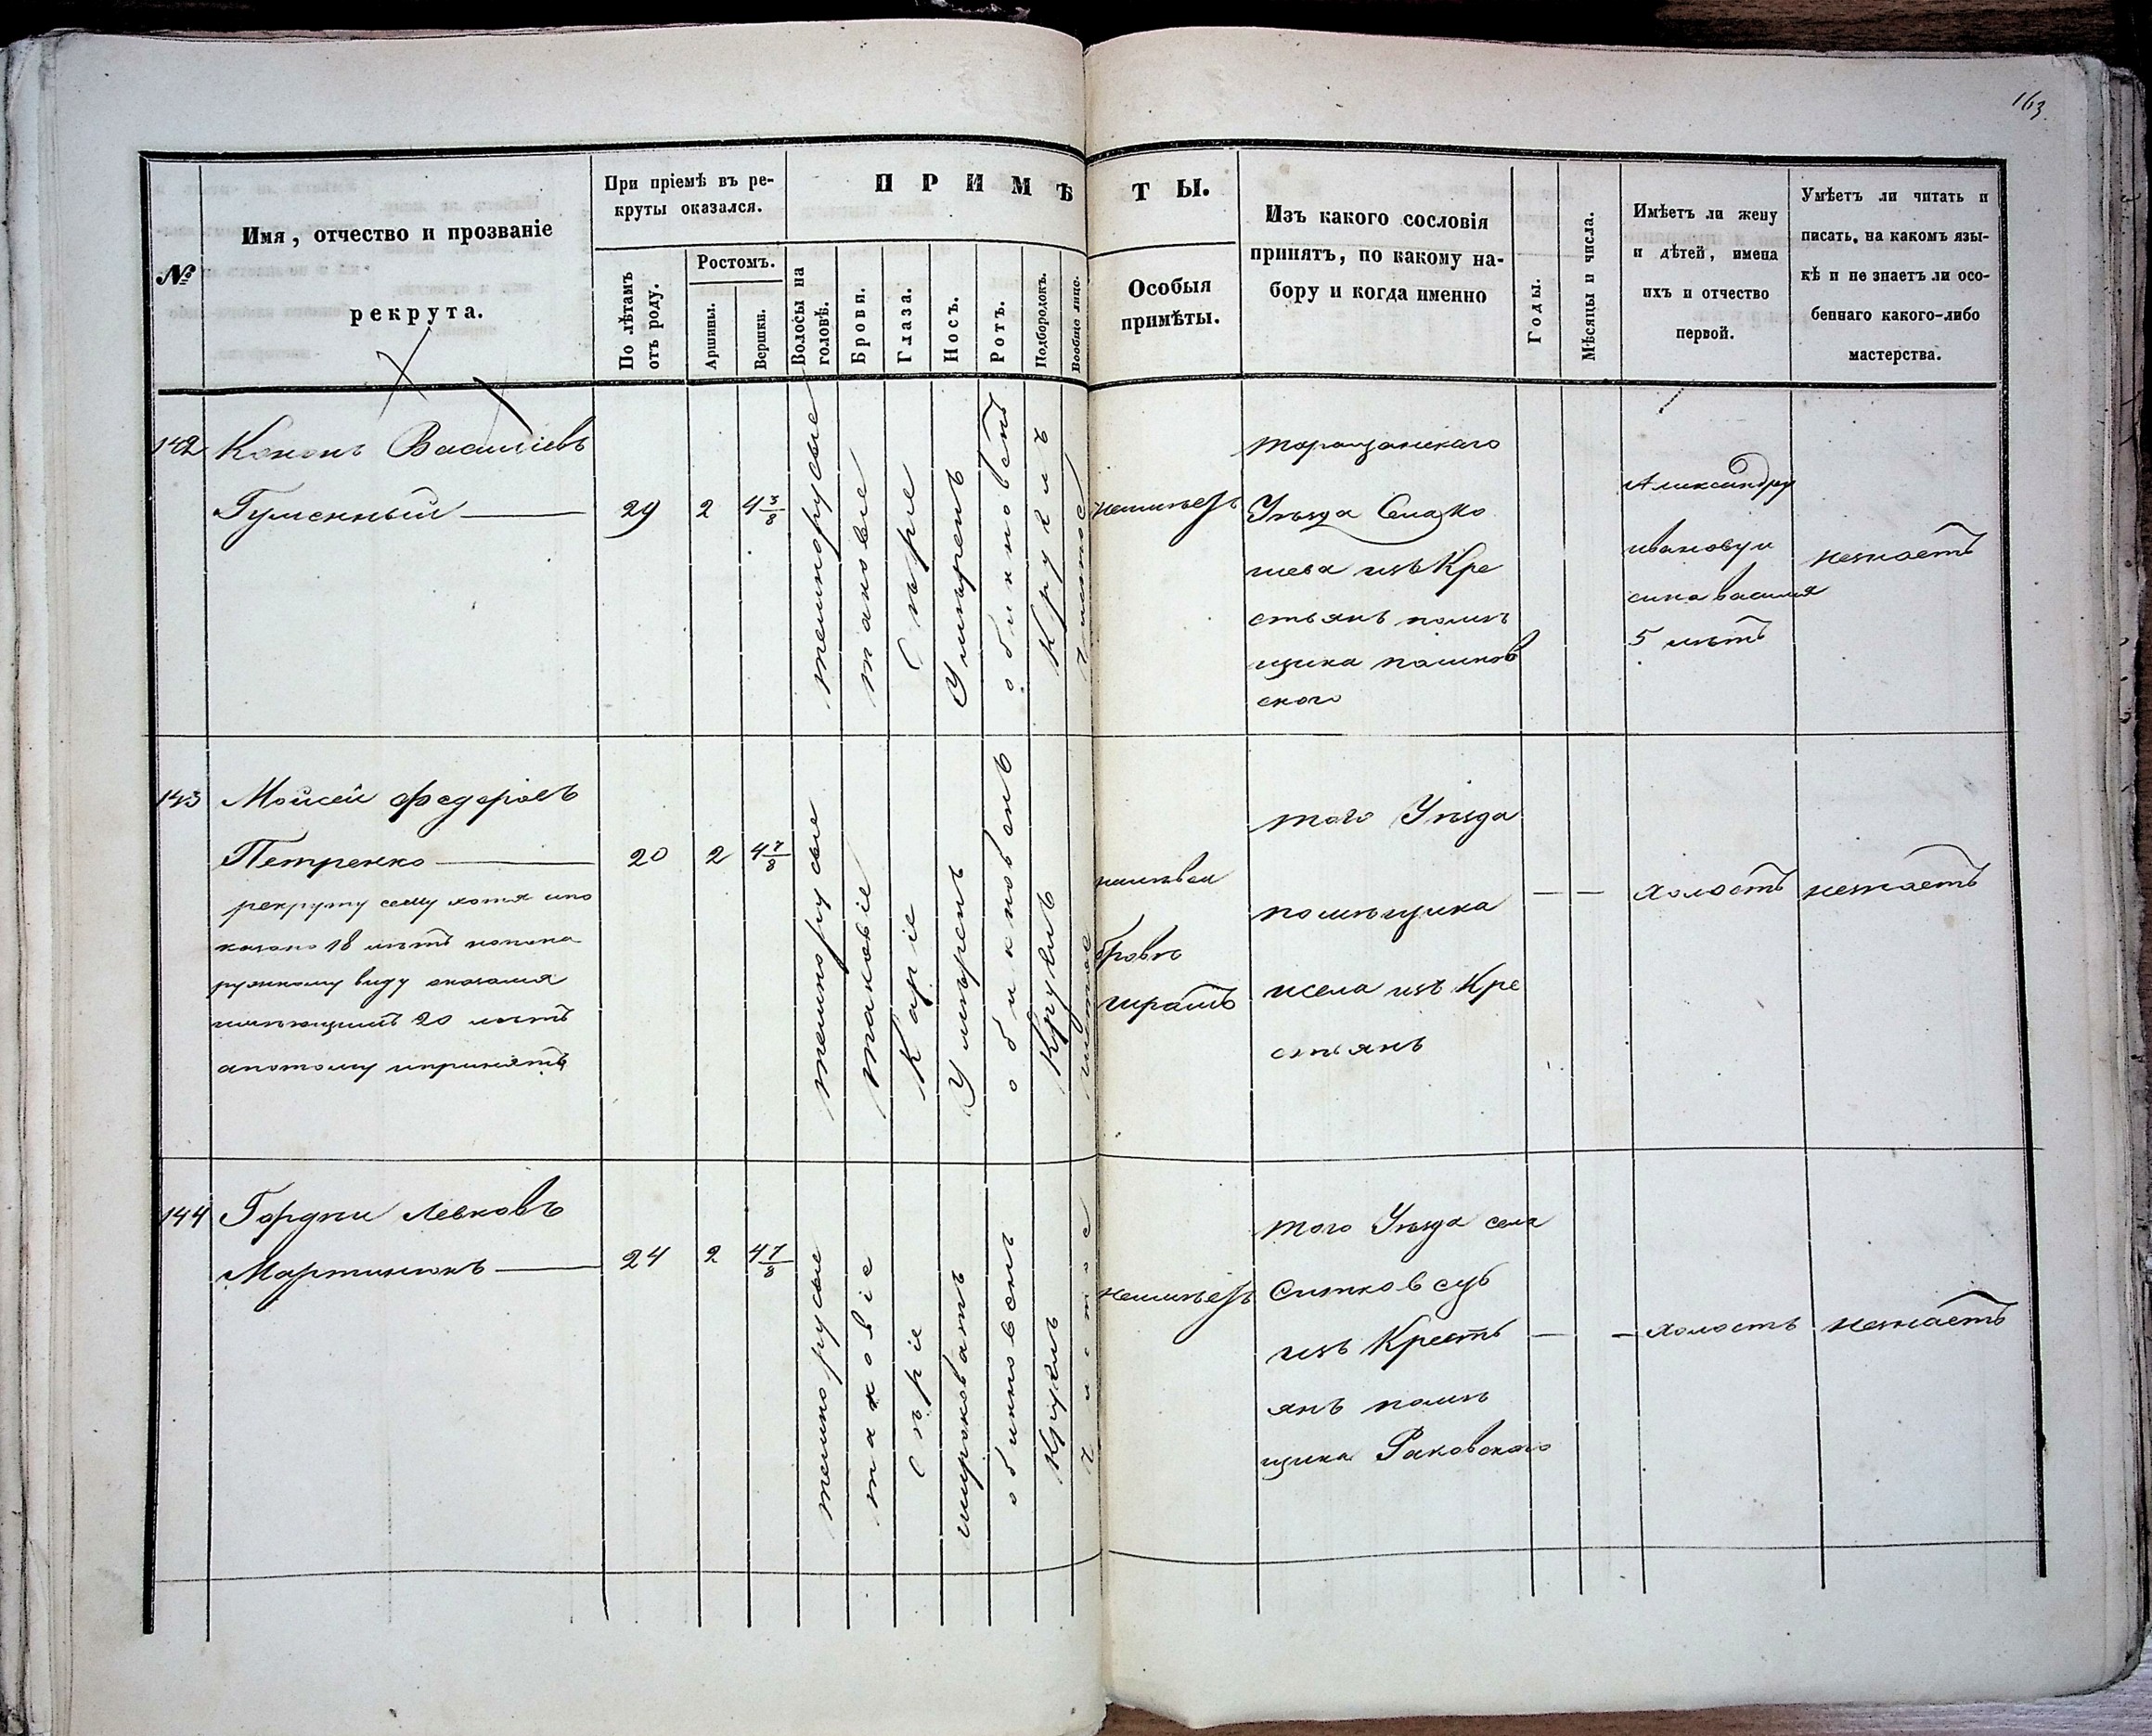 163
№
Имя, отчество и прозваніе
рекрута.
При пріемѣ въ ре-
круты оказался.
По лѣтамъ
отъ роду.
Ростомъ.
Аршины.
Вершки.
ПРИМѢТЫ.
Волосы на
головѣ.
Брови.
Глаза.
Носъ.
Ротъ.
Подбородокъ.
Вообще лице.
Особыя
примѣты.
Изъ какого сословія
принятъ, по какому на-
бору и когда именно
Годы.
Мѣсяцы и числа.
Имѣетъ ли жену
и дѣтей, имена
ихъ и отчество
первой.
Умѣетъ ли читать и
писать, на какомъ язы-
кѣ и не знаетъ ли осо-
беннаго какого-либо
мастерства.
142
Кононъ Василіевъ
Гуменный
29
2
4 3/8
темнорусые
таковые
Сѣрые
Умѣренъ
обикновенъ
Круглъ
чистое
неимѣетъ
Таращанскаго
Уѣзда Села Ко
шева изъ Кре
стьянъ помѣ
щика
ского
Александру
иванову и
сина василия
5 лѣтъ
незнаетъ
143
Мойсей Федоровъ
Петренко
рекруту сему хотя ипо
казано 18 лѣтъ нопона
ружному виду оказался
имѣющимъ 20 лѣтъ
апотому ипринятъ
20
2
4 7/8
темнорусые
таковіе
Каріе
Умѣренъ
обикновенъ
Круглъ
чистое
налѣвой
бровѣ
шрамъ
того Уѣзда
помѣщика
исела изъ Кре
стьянъ
холостъ
незнаетъ
144
Гордѣй Левковъ
Мартинюкъ
24
2
4 7/8
темнорусые
таковіе
Сѣріе
широковатъ
обикновенъ
Круглъ
чистое
неимѣетъ
того Уѣзда села
изъ Кресть
янъ помѣ
щика Раковскаго
холостъ
незнаетъ